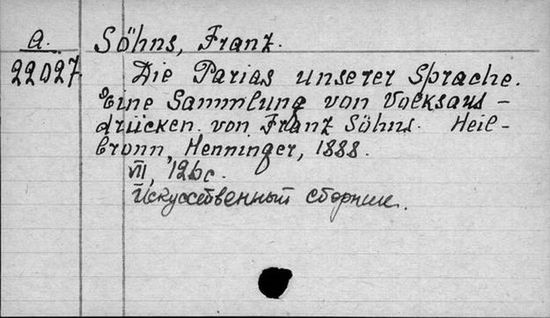 А. Söhns, Franz.
22027 Die Parias unserer Sprache.
Eine Sammlung von Volksaus-
drücken von Franz Söhns. Heil-
bronn, Henninger, 1888.
VII, 126 с.
Искусственный сборник.